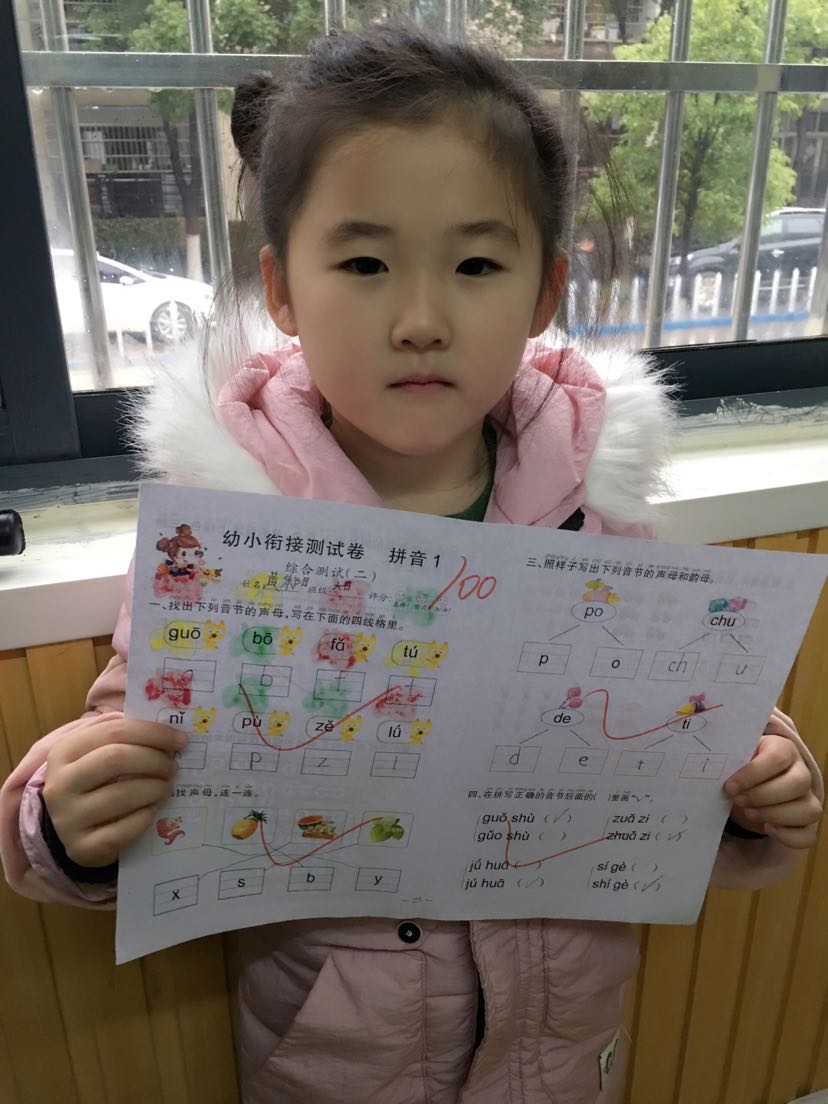 幼小衔接测试卷 拼音1
综合测试(二)
姓名: 班级: 大四 评分:
100
一、找出下列音节的声母,写在下面的四线格里。
guō bō fā tú
b f t
nǐ pù zě lú
n p z l
找声母,连一连。
x s b y
三、照样子写出下列音节的声母和韵母。
po chu
p o ch u
de ti
d e t i
四、在拼写正确的音节后面的( )里画“√”。
guǒ shù (√) zuǎ zi ( )
gǔo shù ( ) zhuǎ zi (√)
jǘ huā ( ) sí gè ( )
jú huā (√) shí gè (√)